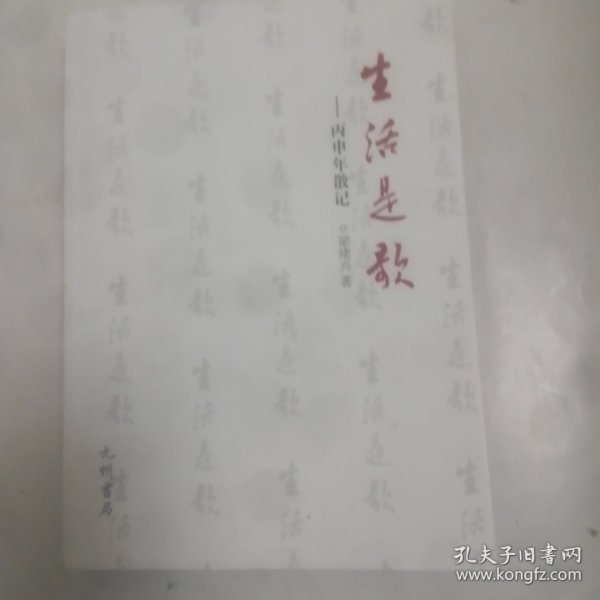 生活是歌
——丙申年散记
梁绪兴 著
九州书局
孔夫子旧书网
www.kongfz.com